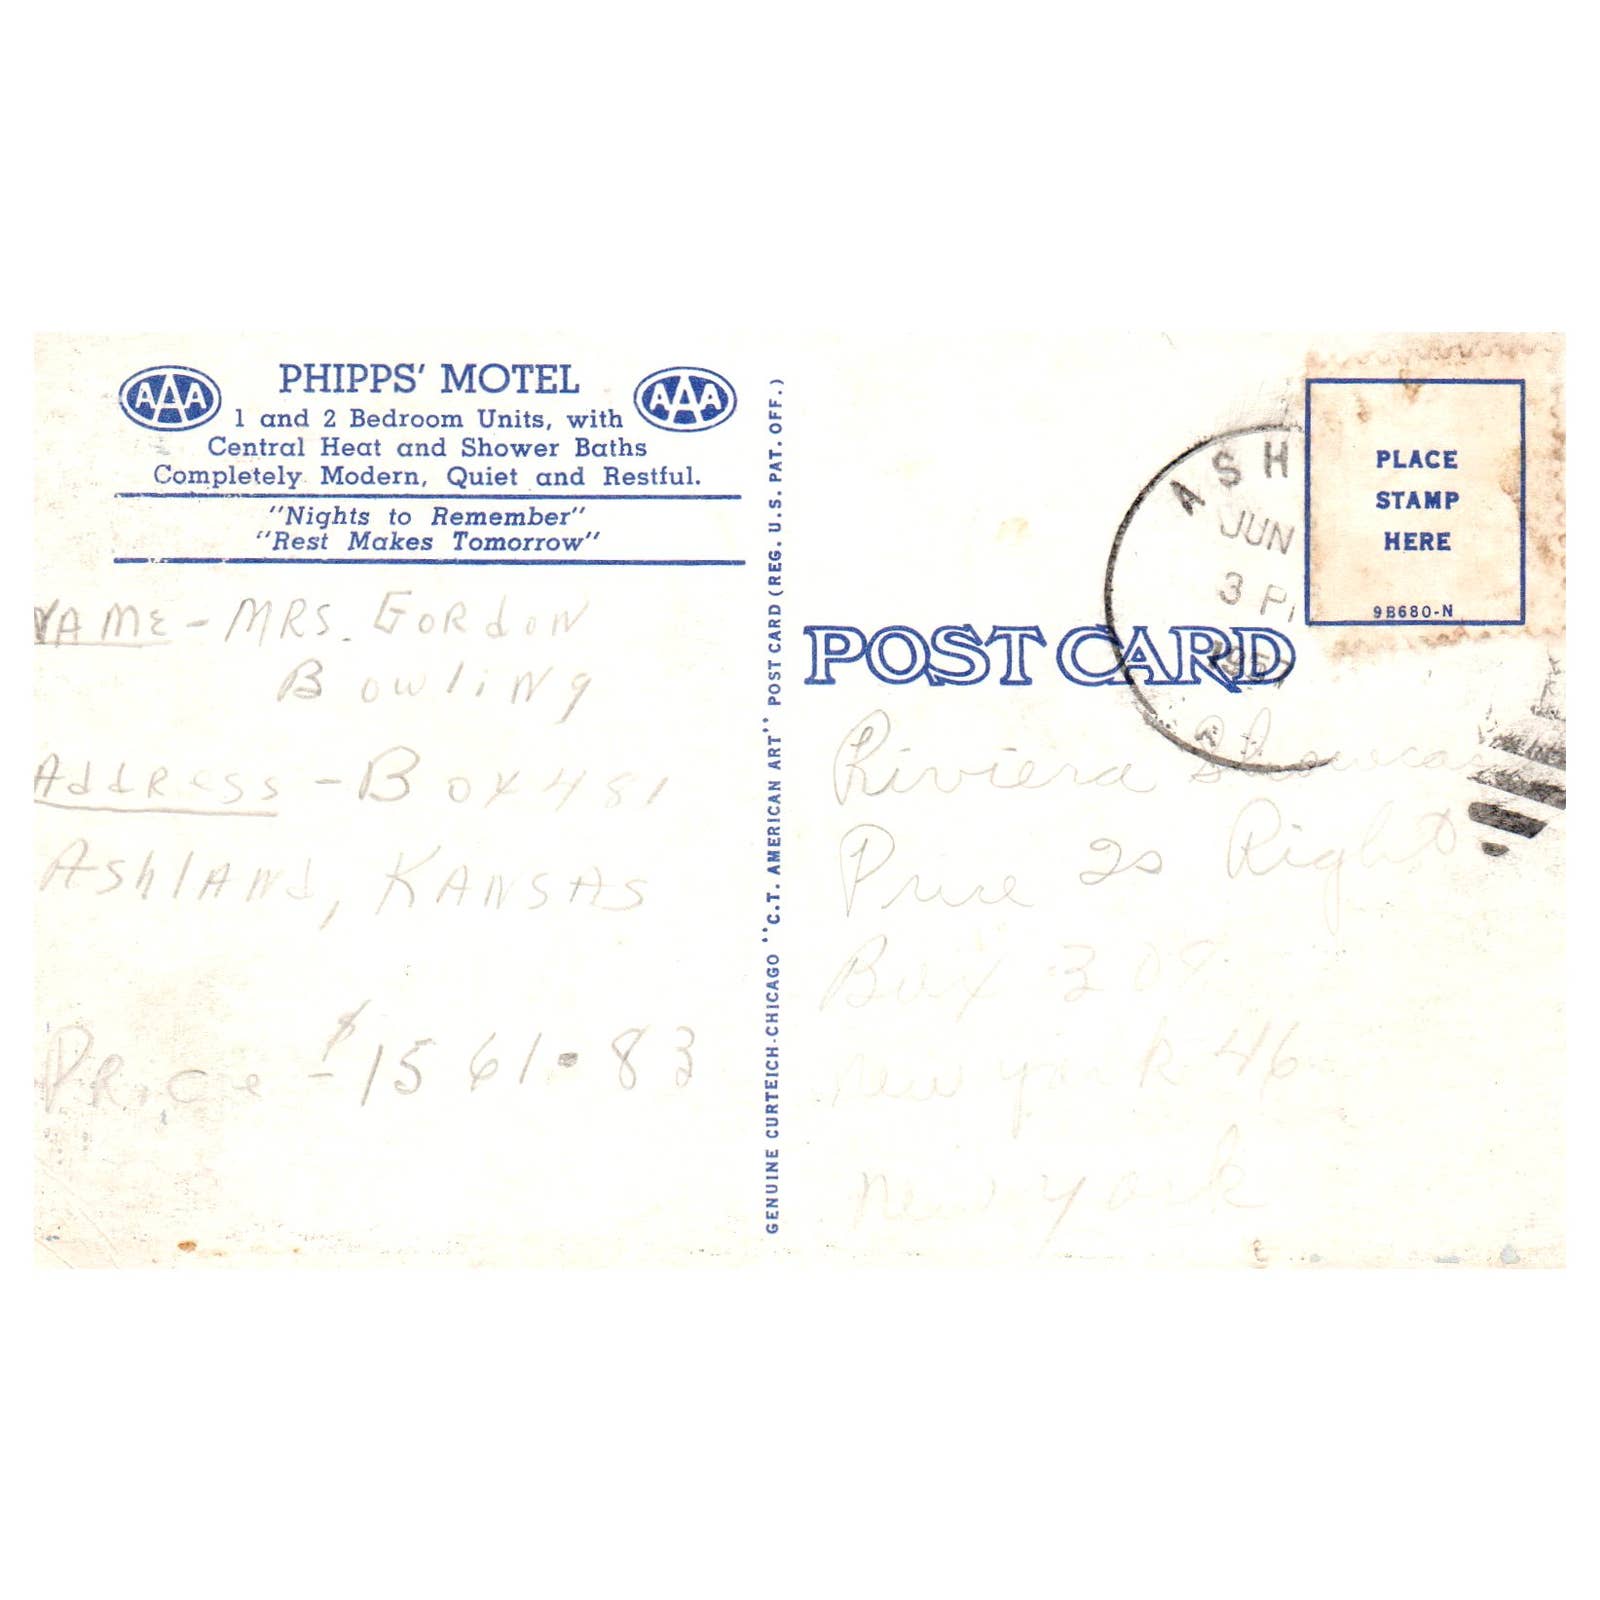 PHIPPS' MOTEL
AAA
AAA
1 and 2 Bedroom Units, with
Central Heat and Shower Baths
Completely Modern, Quiet and Restful.
"Nights to Remember"
"Rest Makes Tomorrow"
NAME - MRS. GORdON
BowliNg
AddRess - Box 481
AshlANd, KANSAS
PRice - $1561.83
GENUINE CURTEICH-CHICAGO "C.T. AMERICAN ART" POST CARD (REG. U.S. PAT. OFF.)
ASH
JUN
3 P
1957
PLACE
STAMP
HERE
9B680-N
POST CARD
Riviera
Price Is Right
Box
New York 46
New York